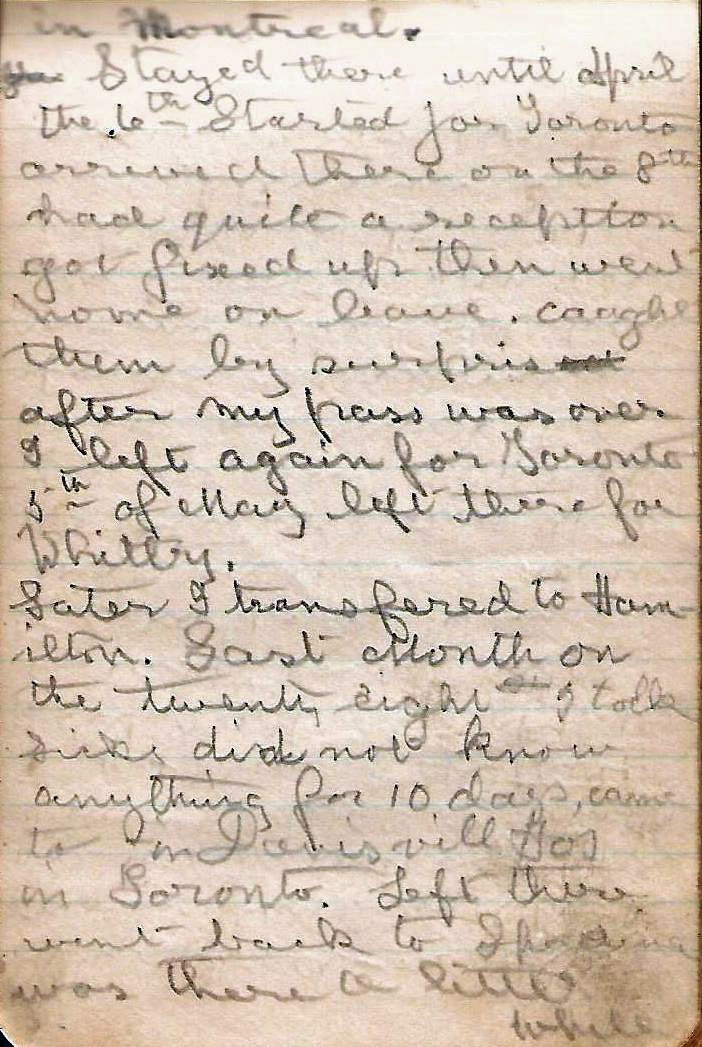 in Montreal.
Stayed there until April
the 6th Started for Toronto
arrived there on the 8th
had quite a reception
got fixed up then went
home on leave. caught
them by surpris
after my pass was over
I left again for Toronto
5th of May left there for
Whitby.
Later I transfered to Ham-
ilton. Last Month on
the twenty eight I took
sick, did not know
anything for 10 days, came
to in Davisvill Hos
in Toronto. Left there
went back to Spadina
was there a little
while